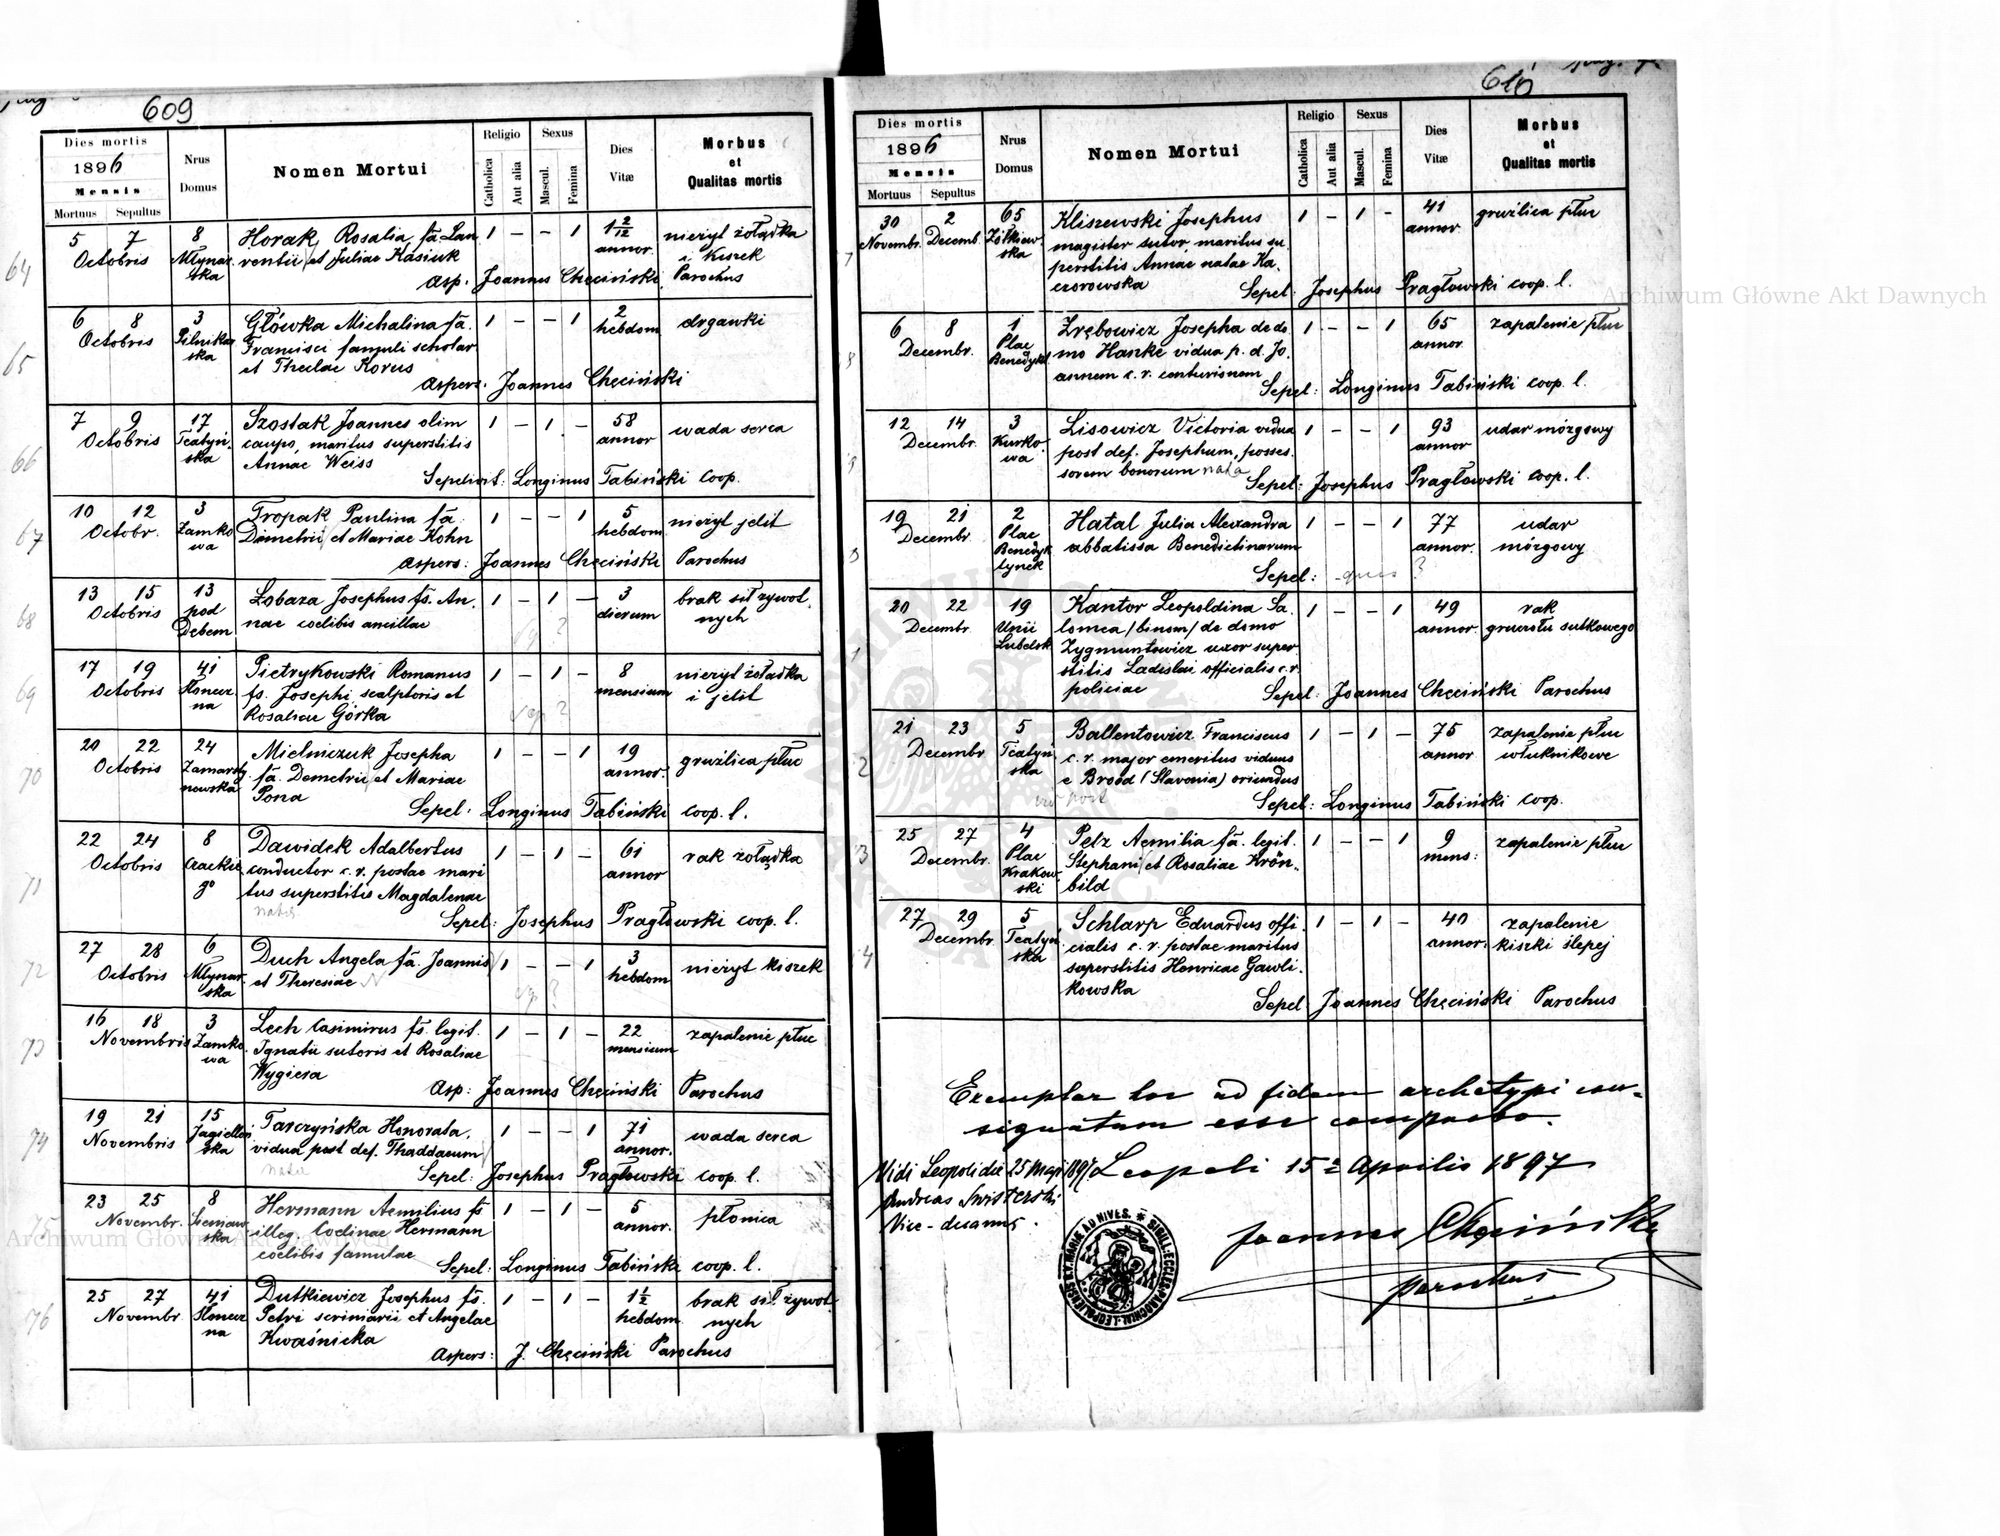 609
Dies mortis
1896
Mensis
Mortuus Sepultus
Nrus Domus
Nomen Mortui
Religio
Catholica
Aut alia
Sexus
Mascul.
Femina
Dies Vitæ
Morbus et Qualitas mortis
64
5 7 8 Horak Rosalia fa Lau 1 – – 1 1 2/12 nieżyt żołądka
Octobris Młynar ventii et Juliae Kasiuk annor. i kiszek
ska Asp: Joannes Chęciński Parochus
65
6 8 3 Główka Michalina fa. 1 – – 1 2 drgawki
Octobris Pilnikar Francisci famuli scholar hebdom
ska et Theclae Korus
Aspers: Joannes Chęciński
66
7 9 17 Szostak Joannes olim 1 – 1 – 58 wada serca
Octobris Teatyń caupo, maritus superstitis annor
ska Annae Weiss
Sepelivit: Longinus Tabiński coop.
67
10 12 3 Tropak Paulina fa. 1 – – 1 5 nieżyt jelit
Octobr. Zamko Demetrii et Mariae Kohn hebdom
wa Aspers: Joannes Chęciński Parochus
68
13 15 13 Łobaza Josephus fs. An. 1 – 1 – 3 brak sił żywot
Octobris pod nae coelibis ancillae dierum nych
Dębem
69
17 19 41 Pietrykowski Romanus 1 – 1 – 8 nieżyt żołądka
Octobris Słonecz fs. Josephi sculptoris et mensium i jelit
na Rosaliae Górka
70
20 22 24 Mielniczuk Josepha 1 – – 1 19 gruźlica płuc
Octobris Zamarsty fa. Demetrii et Mariae annor.
nowska Pona
Sepel: Longinus Tabiński coop. l.
71
22 24 8 Dawidek Adalbertus 1 – 1 – 61 rak żołądka
Octobris Czackie conductor c. r. postae mari annor
go tus superstitis Magdalenae
Sepel: Josephus Pragłowski coop. l.
72
27 28 6 Duch Angela fa. Joannis 1 – – 1 3 nieżyt kiszek
Octobris Młynar et Theresiae hebdom
ska
73
16 18 3 Lech Casimirus fs. legit. 1 – 1 – 22 zapalenie płuc
Novembris Zamko Ignatii sutoris et Rosaliae mensium
wa Wygiera
Asp: Joannes Chęciński Parochus
74
19 21 15 Tarczyńska Honorata, 1 – – 1 71 wada serca
Novembris Jagielloń vidua post def. Thaddaeum annor.
ska nata
Sepel: Josephus Pragłowski coop. l.
75
23 25 8 Hermann Aemilius fs 1 – 1 – 5 płonica
Novembr. Sieniaw illeg. Hermann annor.
ska coelibis famulae
Sepel: Longinus Tabiński coop. l.
76
25 27 41 Dutkiewicz Josephus fs. 1 – 1 – 1 1/2 brak sił żywot
Novembr. Słonecz Petri scriniarii et Angelae hebdom nych
na Kwaśnicka
Aspers: J. Chęciński Parochus
610
Dies mortis
1896
Mensis
Mortuus Sepultus
Nrus Domus
Nomen Mortui
Religio
Catholica
Aut alia
Sexus
Mascul.
Femina
Dies Vitæ
Morbus et Qualitas mortis
30 2 65 Kliszewski Josephus 1 – 1 – 41 gruźlica płuc
Novembr. Decemb. Żółkiew magister sutor, maritus su annor
ska perstitis Annae natae Ka
czorowska Sepel: Josephus Pragłowski coop. l.
6 8 1 Zrębowicz Josepha de do 1 – – 1 65 zapalenie płuc
Decembr. Plac mo Hanke vidua p. d. Jo. annor
Benedykt annem c. r. centurionem
Sepel: Longinus Tabiński coop. l.
12 14 3 Lisowicz Victoria vidua 1 – – 1 93 udar mózgowy
Decembr. Kurko post def. Josephum, posses annor
wa sorem bonorum nata
Sepel: Josephus Pragłowski coop. l.
19 21 2 Hatal Julia Alexandra 1 – – 1 77 udar
Decembr. Plac abbatissa Benedictinarum annor. mózgowy
Benedyk
tynek Sepel: quis?
20 22 19 Kantor Leopoldina Sa. 1 – – 1 49 rak
Decembr. Unii lomea /binom/ de domo annor. gruczołu sutkowego
Lubelsk. Zygmuntowicz uxor super
stitis Ladislai officialis c. r.
policiae Sepel: Joannes Chęciński Parochus
21 23 5 Ballentowicz Franciscus 1 – 1 – 75 zapalenie płuc
Decembr Teatyń c. r. major emeritus viduus annor włóknikowe
ska e Brood (Slavonia) oriundus
Sepel: Longinus Tabiński coop.
25 27 4 Pelz Aemilia fa. legit. 1 – – 1 9 zapalenie płuc
Decembr. Plac Stephani et Rosaliae Krön mens:
Krakow bild
ski
27 29 5 Schlarp Eduardus offi 1 – 1 – 40 zapalenie
Decembr. Teatyń cialis c. r. postae maritus annor. kiszki ślepej
ska superstitis Henricae Gawli
kowska
Sepel: Joannes Chęciński Parochus
Exemplar hoc ad fidem archetypi con-
signatum esse comprobo.
Leopoli 15a Aprilis 1897
Vidi Leopoli die 25 Maji 1897
Andreas Swisterski
Vice-decanus.
Joannes Chęciński
parochus
SIGILL: ECCLES: PAROCHIAL: LEOPOLIENSIS B.V. MARIÆ AD NIVES.
Archiwum Główne Akt Dawnych
Archiwum Główne Akt Dawnych